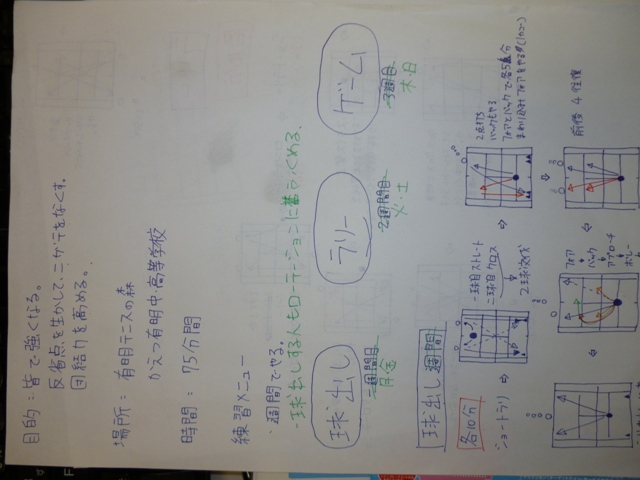 目的：皆で強くなる。
反省点を生かして、ニガテをなくす。
団結力を高める。
場所：有明テニスの森
かえつ有明中高等学校
時間：75分間
練習メニュー
一週間でやる。
・球出しする人もローテーションに
球出し
ラリー
ゲーム
一週間目
2週間目
3週間目
月金
火・土
木日
球出し週間
各10分
ショートラリ
一球目ストレート
二球目クロス
2球交代
2点打ち
バックもやる
フォアとバックで各5分
前後4往復
フォア
バック
アプローチ
ボレー